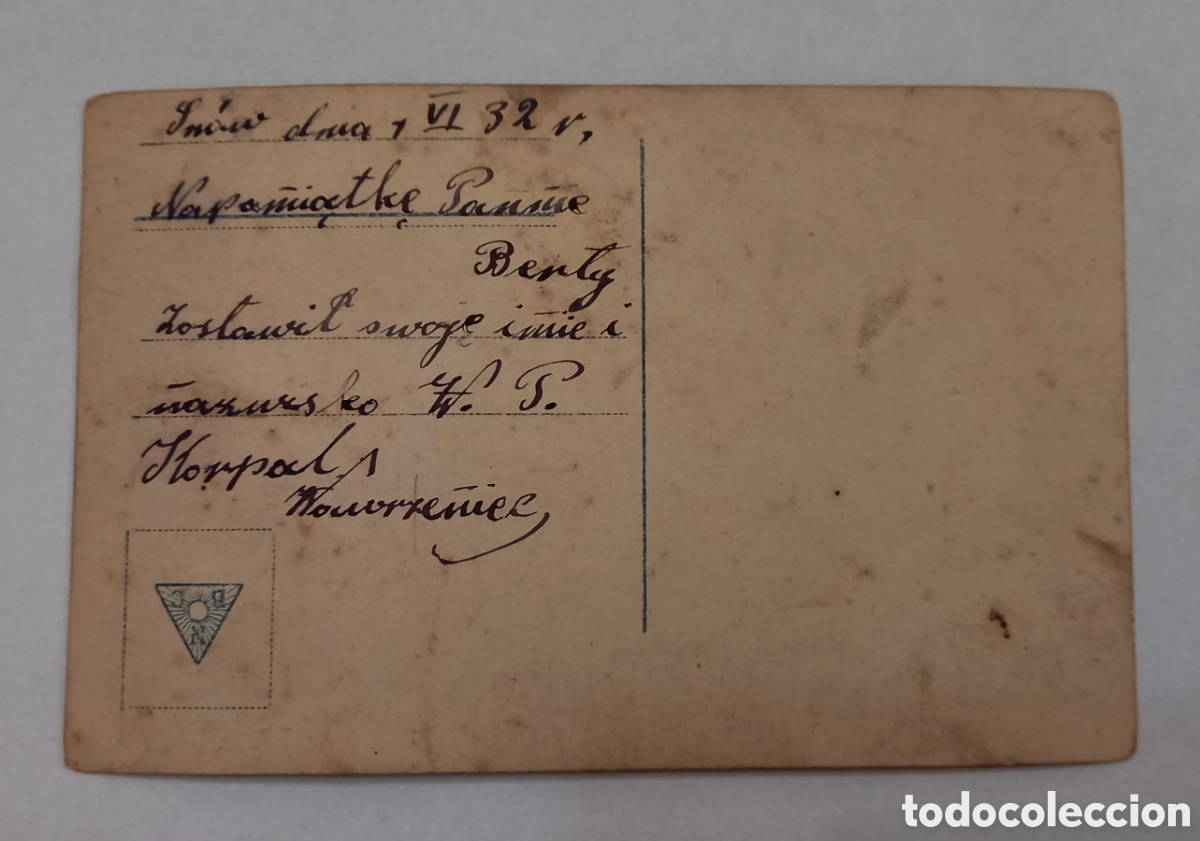 Snów dnia 1 VI 32 r,
Napamiątkę Pannie
Berty
Zostawił swoję imie i
nazwisko W. P.
Korpal
Wawrzeniec
J B
N
todocoleccion